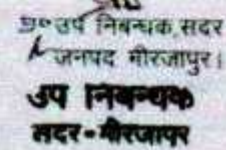 प्र० उप निबन्धक, सदर
जनपद मीरजापुर।
उप निबन्धक
सदर-मीरजापुर